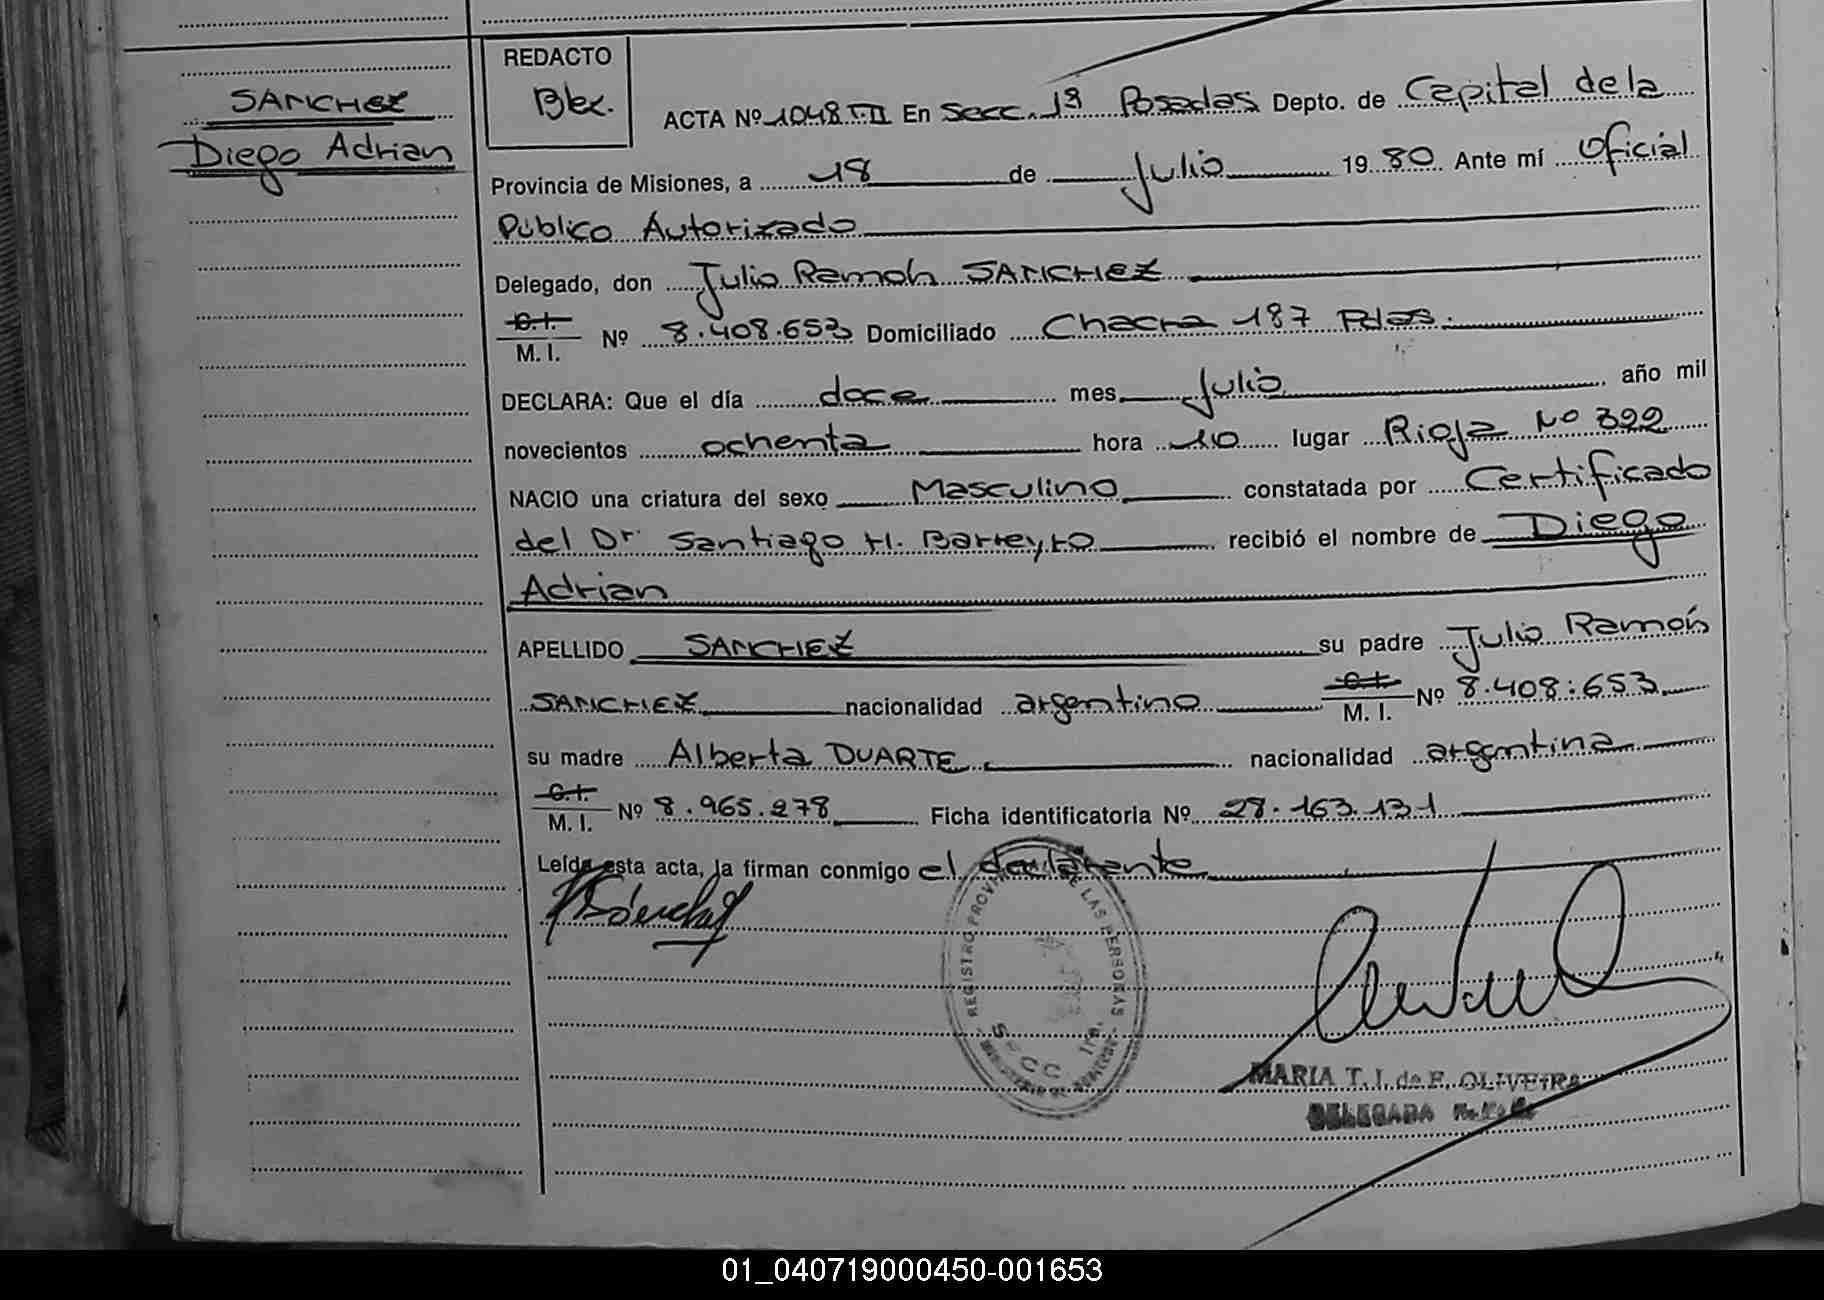 REDACTO
Blex.
SANCHEZ
Diego Adrian
ACTA Nº 1048 T.II En Secc. 1ª Posadas Depto. de Capital de la
Provincia de Misiones, a 18 de Julio 1980 Ante mí Oficial
Público Autorizado
Delegado, don Julio Ramón SANCHEZ
C.I. M. I. Nº 8.408.653 Domiciliado Chacra 187 Pdas.
DECLARA: Que el día doce mes Julio año mil
novecientos ochenta hora 10 lugar Rioja Nº 322
NACIO una criatura del sexo Masculino constatada por Certificado
del Dr Santiago H. Barreyro recibió el nombre de Diego
Adrian
APELLIDO SANCHEZ su padre Julio Ramón
SANCHEZ nacionalidad argentino C.I. M. I. Nº 8.408.653
su madre Alberta DUARTE nacionalidad argentina
C.I. M. I. Nº 8.965.278 Ficha identificatoria Nº 28.163.131
Leída esta acta, la firman conmigo el declarante
REGISTRO PROV DE LAS PERSONAS
SECC 1ra.
MARIA T. J. de F. OLIVEIRA
DELEGADA
01_040719000450-001653